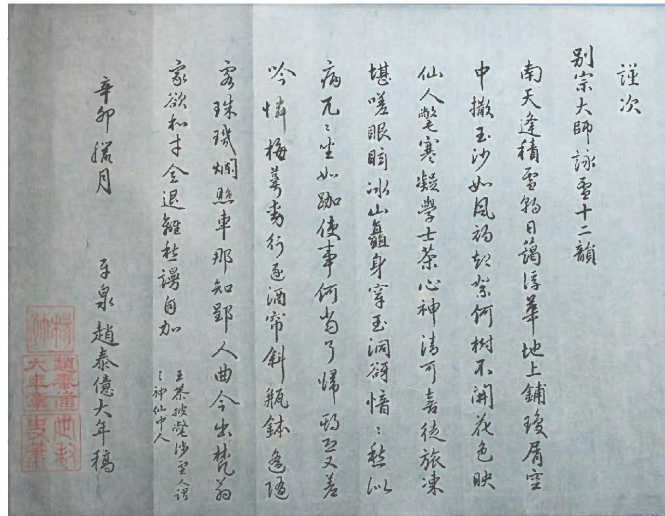 謹次
別宗大師詠雪十二韻
南天逢積雪朝日藹浮華地上鋪瓊屑空
中撒玉沙如風初起絮何樹不開花色映
仙人氅寒凝學士茶心神清可喜徒旅凍
堪嗟眼眩冰山矗身穿玉洞谺愔〻愁似
病兀〻坐如跏使事何當了歸鴻又差
吟憐梅蕚動行逐酒帘斜瓶鉢遙隨
客珠璣爛照車那知郢人曲今出梵翁
家欲和才全退雖愁謾自加
王恭披氅涉雪人謂
之神仙中人
辛卯臘月
平泉趙泰億大年稿
趙泰億
大年